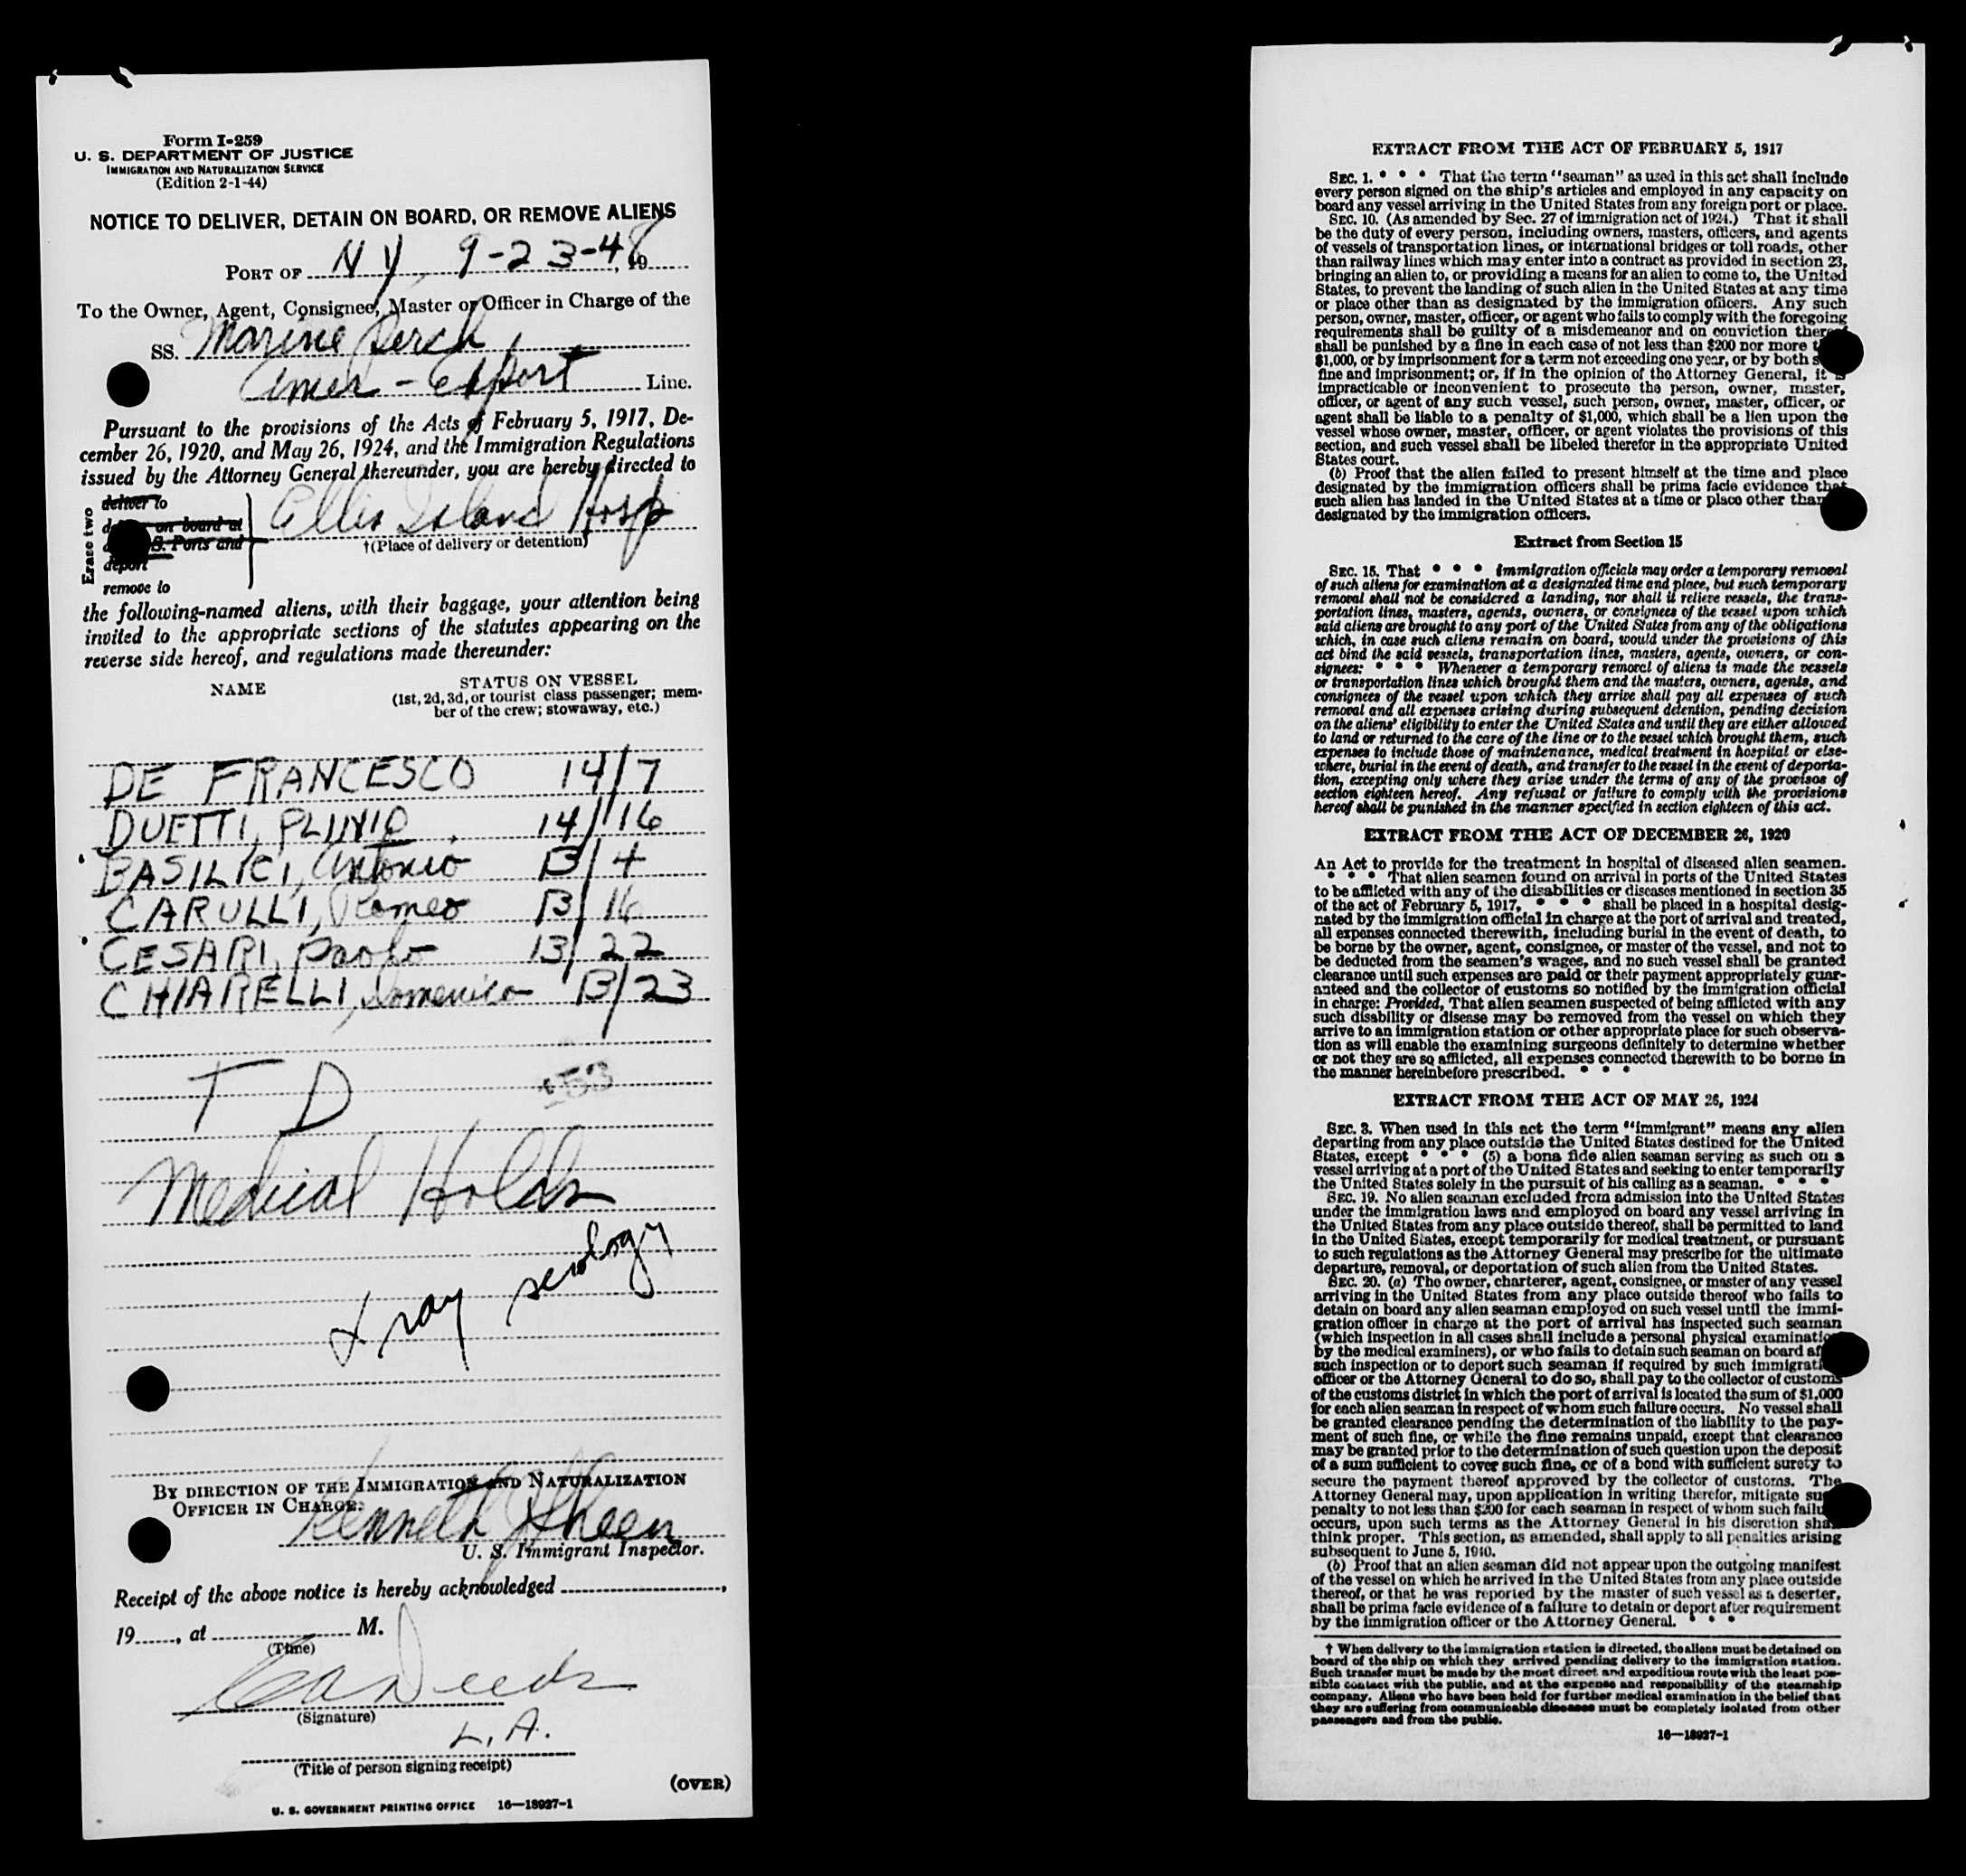 Form I-259
U. S. DEPARTMENT OF JUSTICE
IMMIGRATION AND NATURALIZATION SERVICE
(Edition 2-1-44)
NOTICE TO DELIVER, DETAIN ON BOARD, OR REMOVE ALIENS
PORT OF NY 9-23-48, 19
To the Owner, Agent, Consignee, Master or Officer in Charge of the
SS. Marine Perch
Amer - Export Line.
Pursuant to the provisions of the Acts of February 5, 1917, De-
cember 26, 1920, and May 26, 1924, and the Immigration Regulations
issued by the Attorney General thereunder, you are hereby directed to
Erase two
deliver to
on board at
S. Ports and
deport
remove to
Ellis Island Hosp
†(Place of delivery or detention)
the following-named aliens, with their baggage, your attention being
invited to the appropriate sections of the statutes appearing on the
reverse side hereof, and regulations made thereunder:
NAME STATUS ON VESSEL
(1st, 2d, 3d, or tourist class passenger; mem-
ber of the crew; stowaway, etc.)
DE FRANCESCO 14/7
DUETTI, PLINIO 14/16
BASILICI, Antonio 13/4
CARULLI, Romeo 13/16
CESARI, Paolo 13/22
CHIARELLI, Domenico 13/23
T D
Medical Holds
X ray serology
BY DIRECTION OF THE IMMIGRATION AND NATURALIZATION
OFFICER IN CHARGE:
Kenneth J Sheen
U. S. Immigrant Inspector.
Receipt of the above notice is hereby acknowledged ,
19 , at M.
(Time)
(Signature)
L.A.
(Title of person signing receipt)
(OVER)
U. S. GOVERNMENT PRINTING OFFICE 16—18937-1
EXTRACT FROM THE ACT OF FEBRUARY 5, 1917
SEC. 1. * * * That the term "seaman" as used in this act shall include
every person signed on the ship's articles and employed in any capacity on
board any vessel arriving in the United States from any foreign port or place.
SEC. 10. (As amended by Sec. 27 of immigration act of 1924.) That it shall
be the duty of every person, including owners, masters, officers, and agents
of vessels of transportation lines, or international bridges or toll roads, other
than railway lines which may enter into a contract as provided in section 23,
bringing an alien to, or providing a means for an alien to come to, the United
States, to prevent the landing of such alien in the United States at any time
or place other than as designated by the immigration officers. Any such
person, owner, master, officer, or agent who fails to comply with the foregoing
requirements shall be guilty of a misdemeanor and on conviction
shall be punished by a fine in each case of not less than $200 nor more
$1,000, or by imprisonment for a term not exceeding one year, or by both
fine and imprisonment; or, if in the opinion of the Attorney General, it
impracticable or inconvenient to prosecute the person, owner, master,
officer, or agent of any such vessel, such person, owner, master, officer, or
agent shall be liable to a penalty of $1,000, which shall be a lien upon the
vessel whose owner, master, officer, or agent violates the provisions of this
section, and such vessel shall be libeled therefor in the appropriate United
States court.
(b) Proof that the alien failed to present himself at the time and place
designated by the immigration officers shall be prima facie evidence that
such alien has landed in the United States at a time or place other than
designated by the immigration officers.
Extract from Section 15
SEC. 15. That * * * immigration officials may order a temporary removal
of such aliens for examination at a designated time and place, but such temporary
removal shall not be considered a landing, nor shall it relieve vessels, the trans-
portation lines, masters, agents, owners, or consignees of the vessel upon which
said aliens are brought to any port of the United States from any of the obligations
which, in case such aliens remain on board, would under the provisions of this
act bind the said vessels, transportation lines, masters, agents, owners, or con-
signees: * * * Whenever a temporary removal of aliens is made the vessels
or transportation lines which brought them and the masters, owners, agents, and
consignees of the vessel upon which they arrive shall pay all expenses of such
removal and all expenses arising during subsequent detention, pending decision
on the aliens' eligibility to enter the United States and until they are either allowed
to land or returned to the care of the line or to the vessel which brought them, such
expenses to include those of maintenance, medical treatment in hospital or else-
where, burial in the event of death, and transfer to the vessel in the event of deporta-
tion, excepting only where they arise under the terms of any of the provisos of
section eighteen hereof. Any refusal or failure to comply with the provisions
hereof shall be punished in the manner specified in section eighteen of this act.
EXTRACT FROM THE ACT OF DECEMBER 26, 1920
An Act to provide for the treatment in hospital of diseased alien seamen.
* * * That alien seamen found on arrival in ports of the United States
to be afflicted with any of the disabilities or diseases mentioned in section 35
of the act of February 5, 1917, * * * shall be placed in a hospital desig-
nated by the immigration official in charge at the port of arrival and treated,
all expenses connected therewith, including burial in the event of death, to
be borne by the owner, agent, consignee, or master of the vessel, and not to
be deducted from the seamen's wages, and no such vessel shall be granted
clearance until such expenses are paid or their payment appropriately guar-
anteed and the collector of customs so notified by the immigration official
in charge: Provided, That alien seamen suspected of being afflicted with any
such disability or disease may be removed from the vessel on which they
arrive to an immigration station or other appropriate place for such observa-
tion as will enable the examining surgeons definitely to determine whether
or not they are so afflicted, all expenses connected therewith to be borne in
the manner hereinbefore prescribed. * * *
EXTRACT FROM THE ACT OF MAY 26, 1924
SEC. 3. When used in this act the term "immigrant" means any alien
departing from any place outside the United States destined for the United
States, except * * * (5) a bona fide alien seaman serving as such on a
vessel arriving at a port of the United States and seeking to enter temporarily
the United States solely in the pursuit of his calling as a seaman. * * *
SEC. 19. No alien seaman excluded from admission into the United States
under the immigration laws and employed on board any vessel arriving in
the United States from any place outside thereof, shall be permitted to land
in the United States, except temporarily for medical treatment, or pursuant
to such regulations as the Attorney General may prescribe for the ultimate
departure, removal, or deportation of such alien from the United States.
SEC. 20. (a) The owner, charterer, agent, consignee, or master of any vessel
arriving in the United States from any place outside thereof who fails to
detain on board any alien seaman employed on such vessel until the immi-
gration officer in charge at the port of arrival has inspected such seaman
(which inspection in all cases shall include a personal physical examination
by the medical examiners), or who fails to detain such seaman on board
such inspection or to deport such seaman if required by such
officer or the Attorney General to do so, shall pay to the collector of customs
of the customs district in which the port of arrival is located the sum of $1,000
for each alien seaman in respect of whom such failure occurs. No vessel shall
be granted clearance pending the determination of the liability to the pay-
ment of such fine, or while the fine remains unpaid, except that clearance
may be granted prior to the determination of such question upon the deposit
of a sum sufficient to cover such fine, or of a bond with sufficient surety to
secure the payment thereof approved by the collector of customs. The
Attorney General may, upon application in writing therefor, mitigate
penalty to not less than $200 for each seaman in respect of whom such
occurs, upon such terms as the Attorney General in his discretion shall
think proper. This section, as amended, shall apply to all penalties arising
subsequent to June 5, 1940.
(b) Proof that an alien seaman did not appear upon the outgoing manifest
of the vessel on which he arrived in the United States from any place outside
thereof, or that he was reported by the master of such vessel as a deserter,
shall be prima facie evidence of a failure to detain or deport after requirement
by the immigration officer or the Attorney General. * *
† When delivery to the immigration station is directed, the aliens must be detained on
board of the ship on which they arrived pending delivery to the immigration station.
Such transfer must be made by the most direct and expeditious route with the least pos-
sible contact with the public, and at the expense and responsibility of the steamship
company. Aliens who have been held for further medical examination in the belief that
they are suffering from communicable diseases must be completely isolated from other
passengers and from the public.
16—18937-1